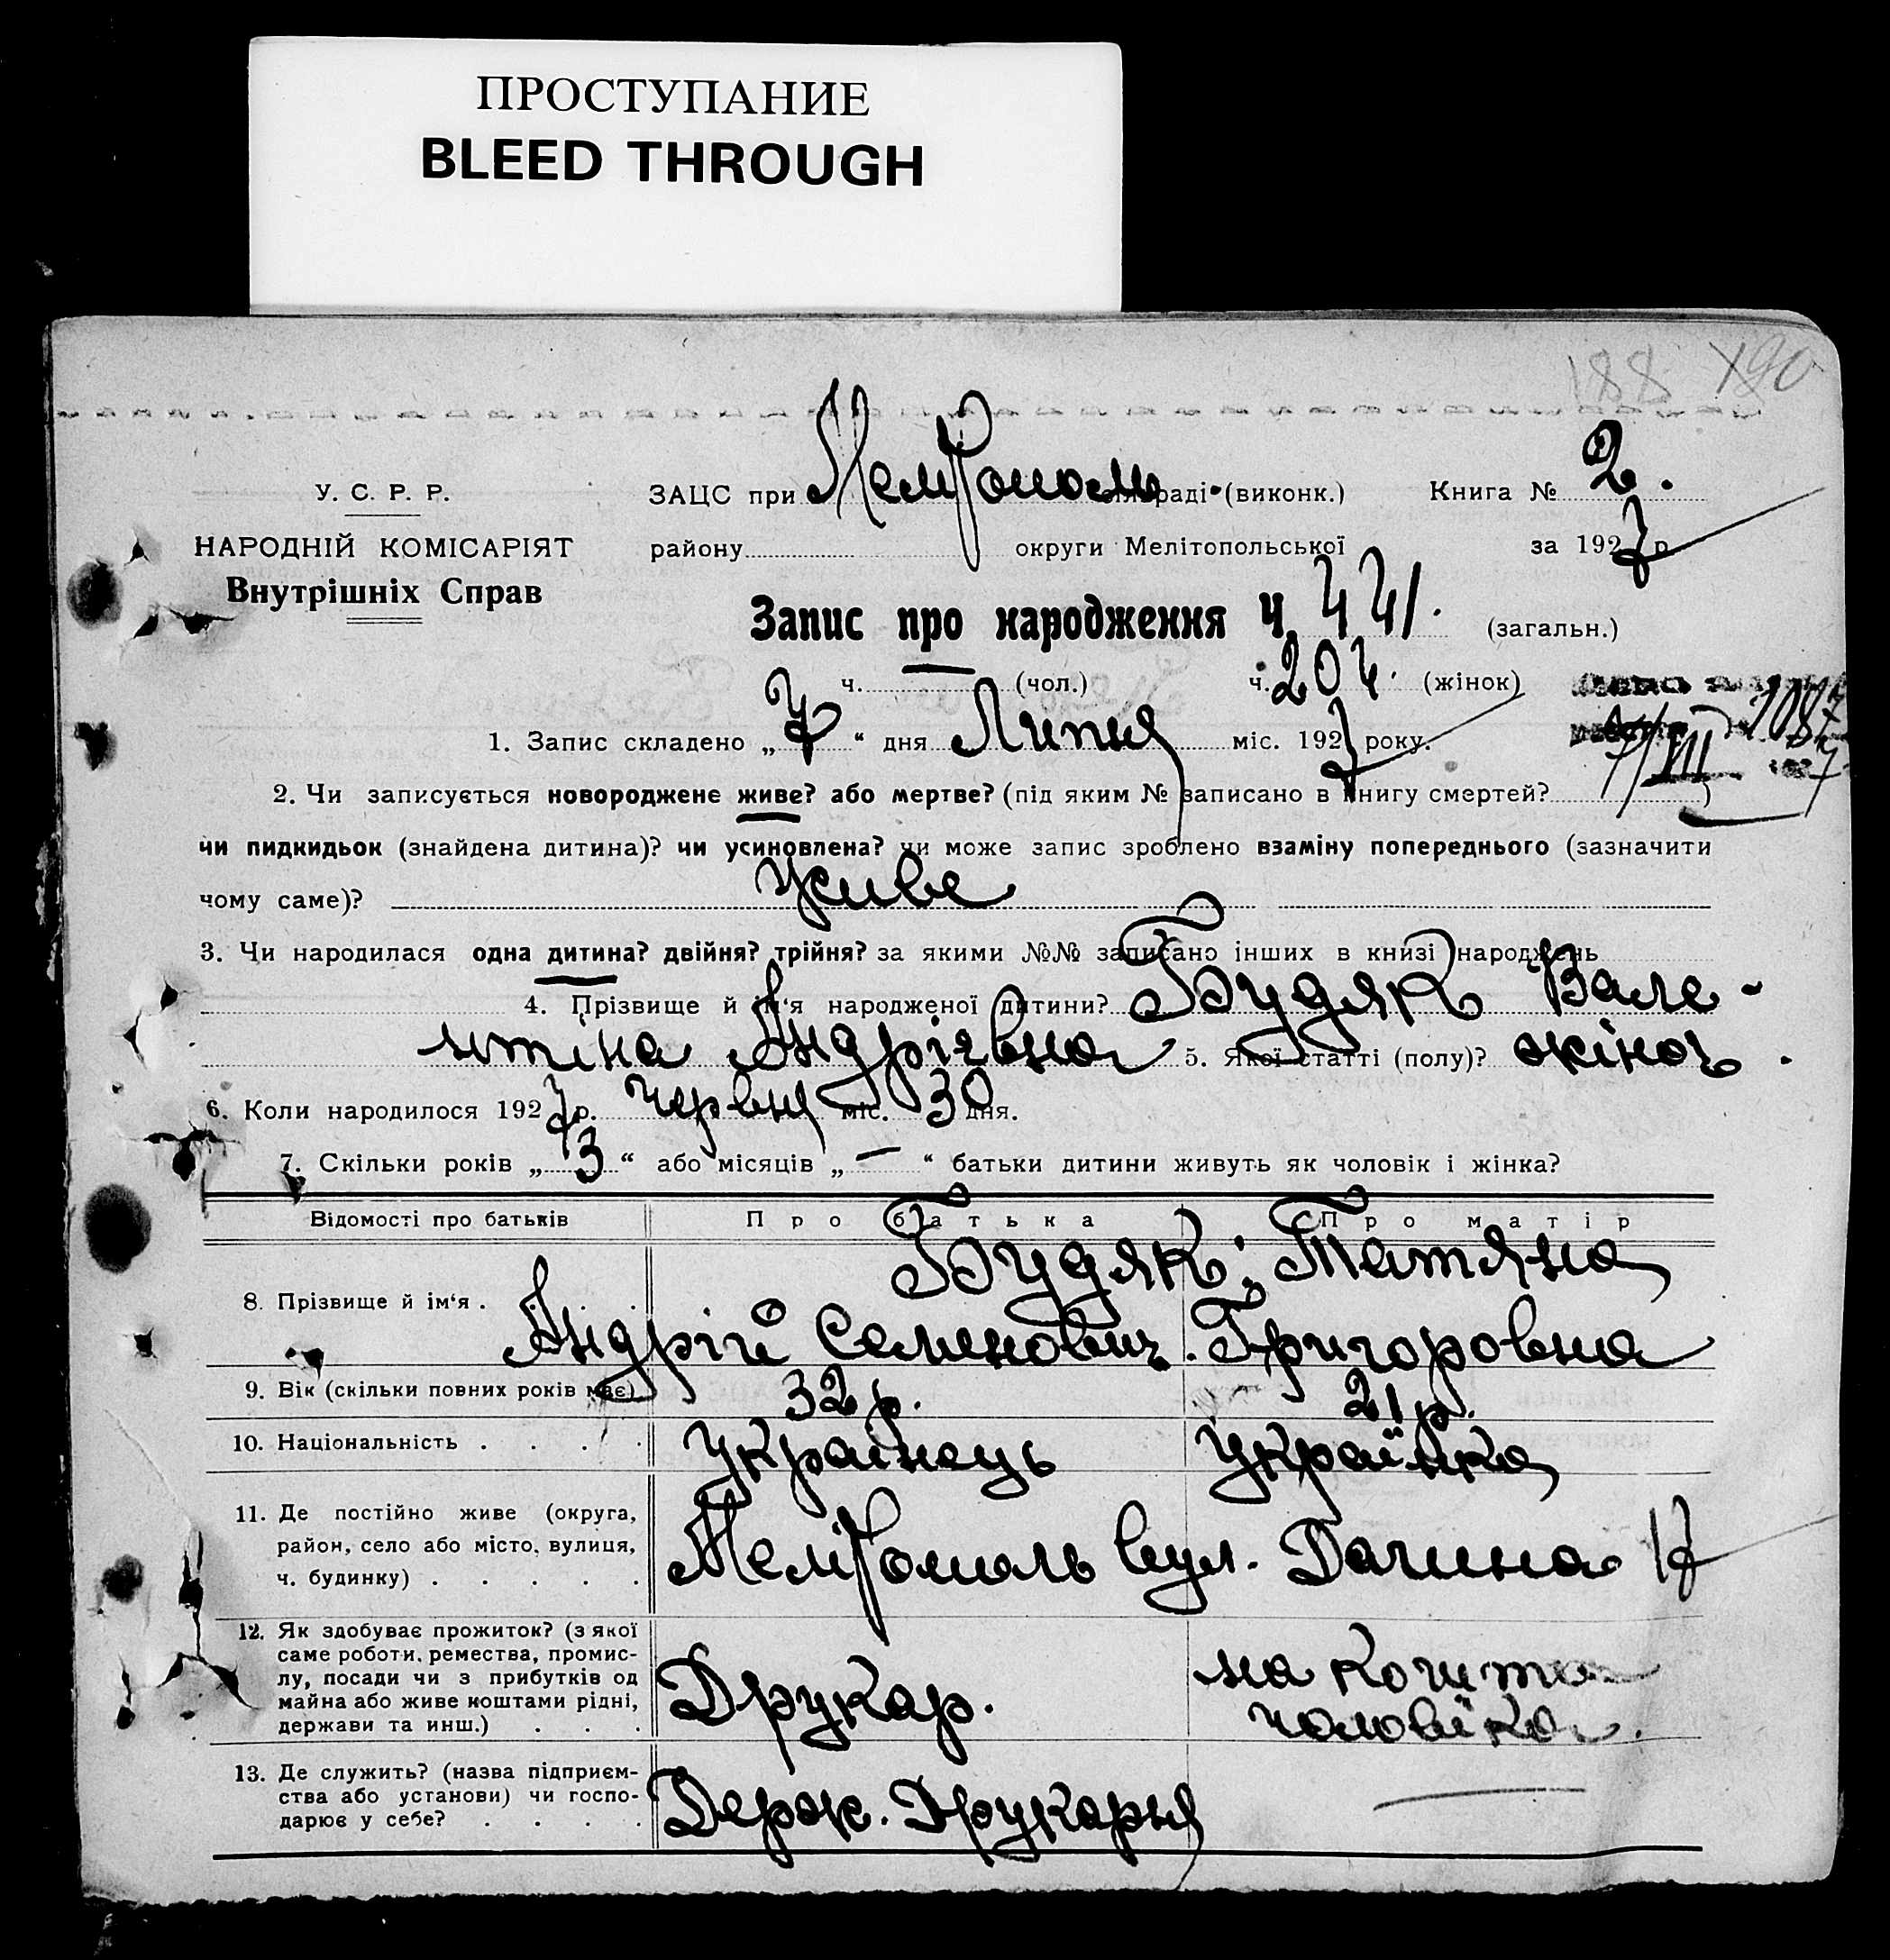 ПРОСТУПАНИЕ
BLEED THROUGH
188 190
У. С. Р. Р.
НАРОДНІЙ КОМІСАРІЯТ
Внутрішніх Справ
ЗАЦС при Мелітополь раді (виконк.) Книга № 2.
району округи Мелітопольської за 1927 р.
Запис про народження ч. 441. (загальн.)
ч. — (чол.) ч. 204. (жінок)
1. Запис складено „ 7 “ дня Липня міс. 1927 року.
2. Чи записується новороджене живе? або мертве? (під яким № записано в книгу смертей? )
чи пидкидьок (знайдена дитина)? чи усиновлена? чи може запис зроблено взаміну попереднього (зазначити
чому саме)? живе
3. Чи народилася одна дитина? двійня? трійня? за якими №№ записано інших в книзі народжень
4. Прізвище й ім‘я народженої дитини? Будяк Вале-
нтіна Андріївна 5. Якої статті (полу)? жіноч.
6. Коли народилося 1927 р. червня міс. 30 дня.
7. Скільки років „ 3 “ або місяців „ — “ батьки дитини живуть як чоловік і жінка?
Відомості про батьків Про батька Про матір
8. Прізвище й ім‘я . Будяк: Татяна
Андрій Семенович. Григоровна
9. Вік (скільки повних років має) 32 р. 21 р.
10. Національність . . . . Українець Українка
11. Де постійно живе (округа,
район, село або місто, вулиця,
ч. будинку) . . . . . Мелітополь вул. Дачина 17
12. Як здобуває прожиток? (з якої
саме роботи, ремества, промис-
лу, посади чи з прибутків од
майна або живе коштами рідні,
держави та инш.) . . . Друкар. на кошта
чоловіка.
13. Де служить? (назва підприєм-
ства або установи) чи госпо-
дарює у себе? . . . . Держ. Друкарня —